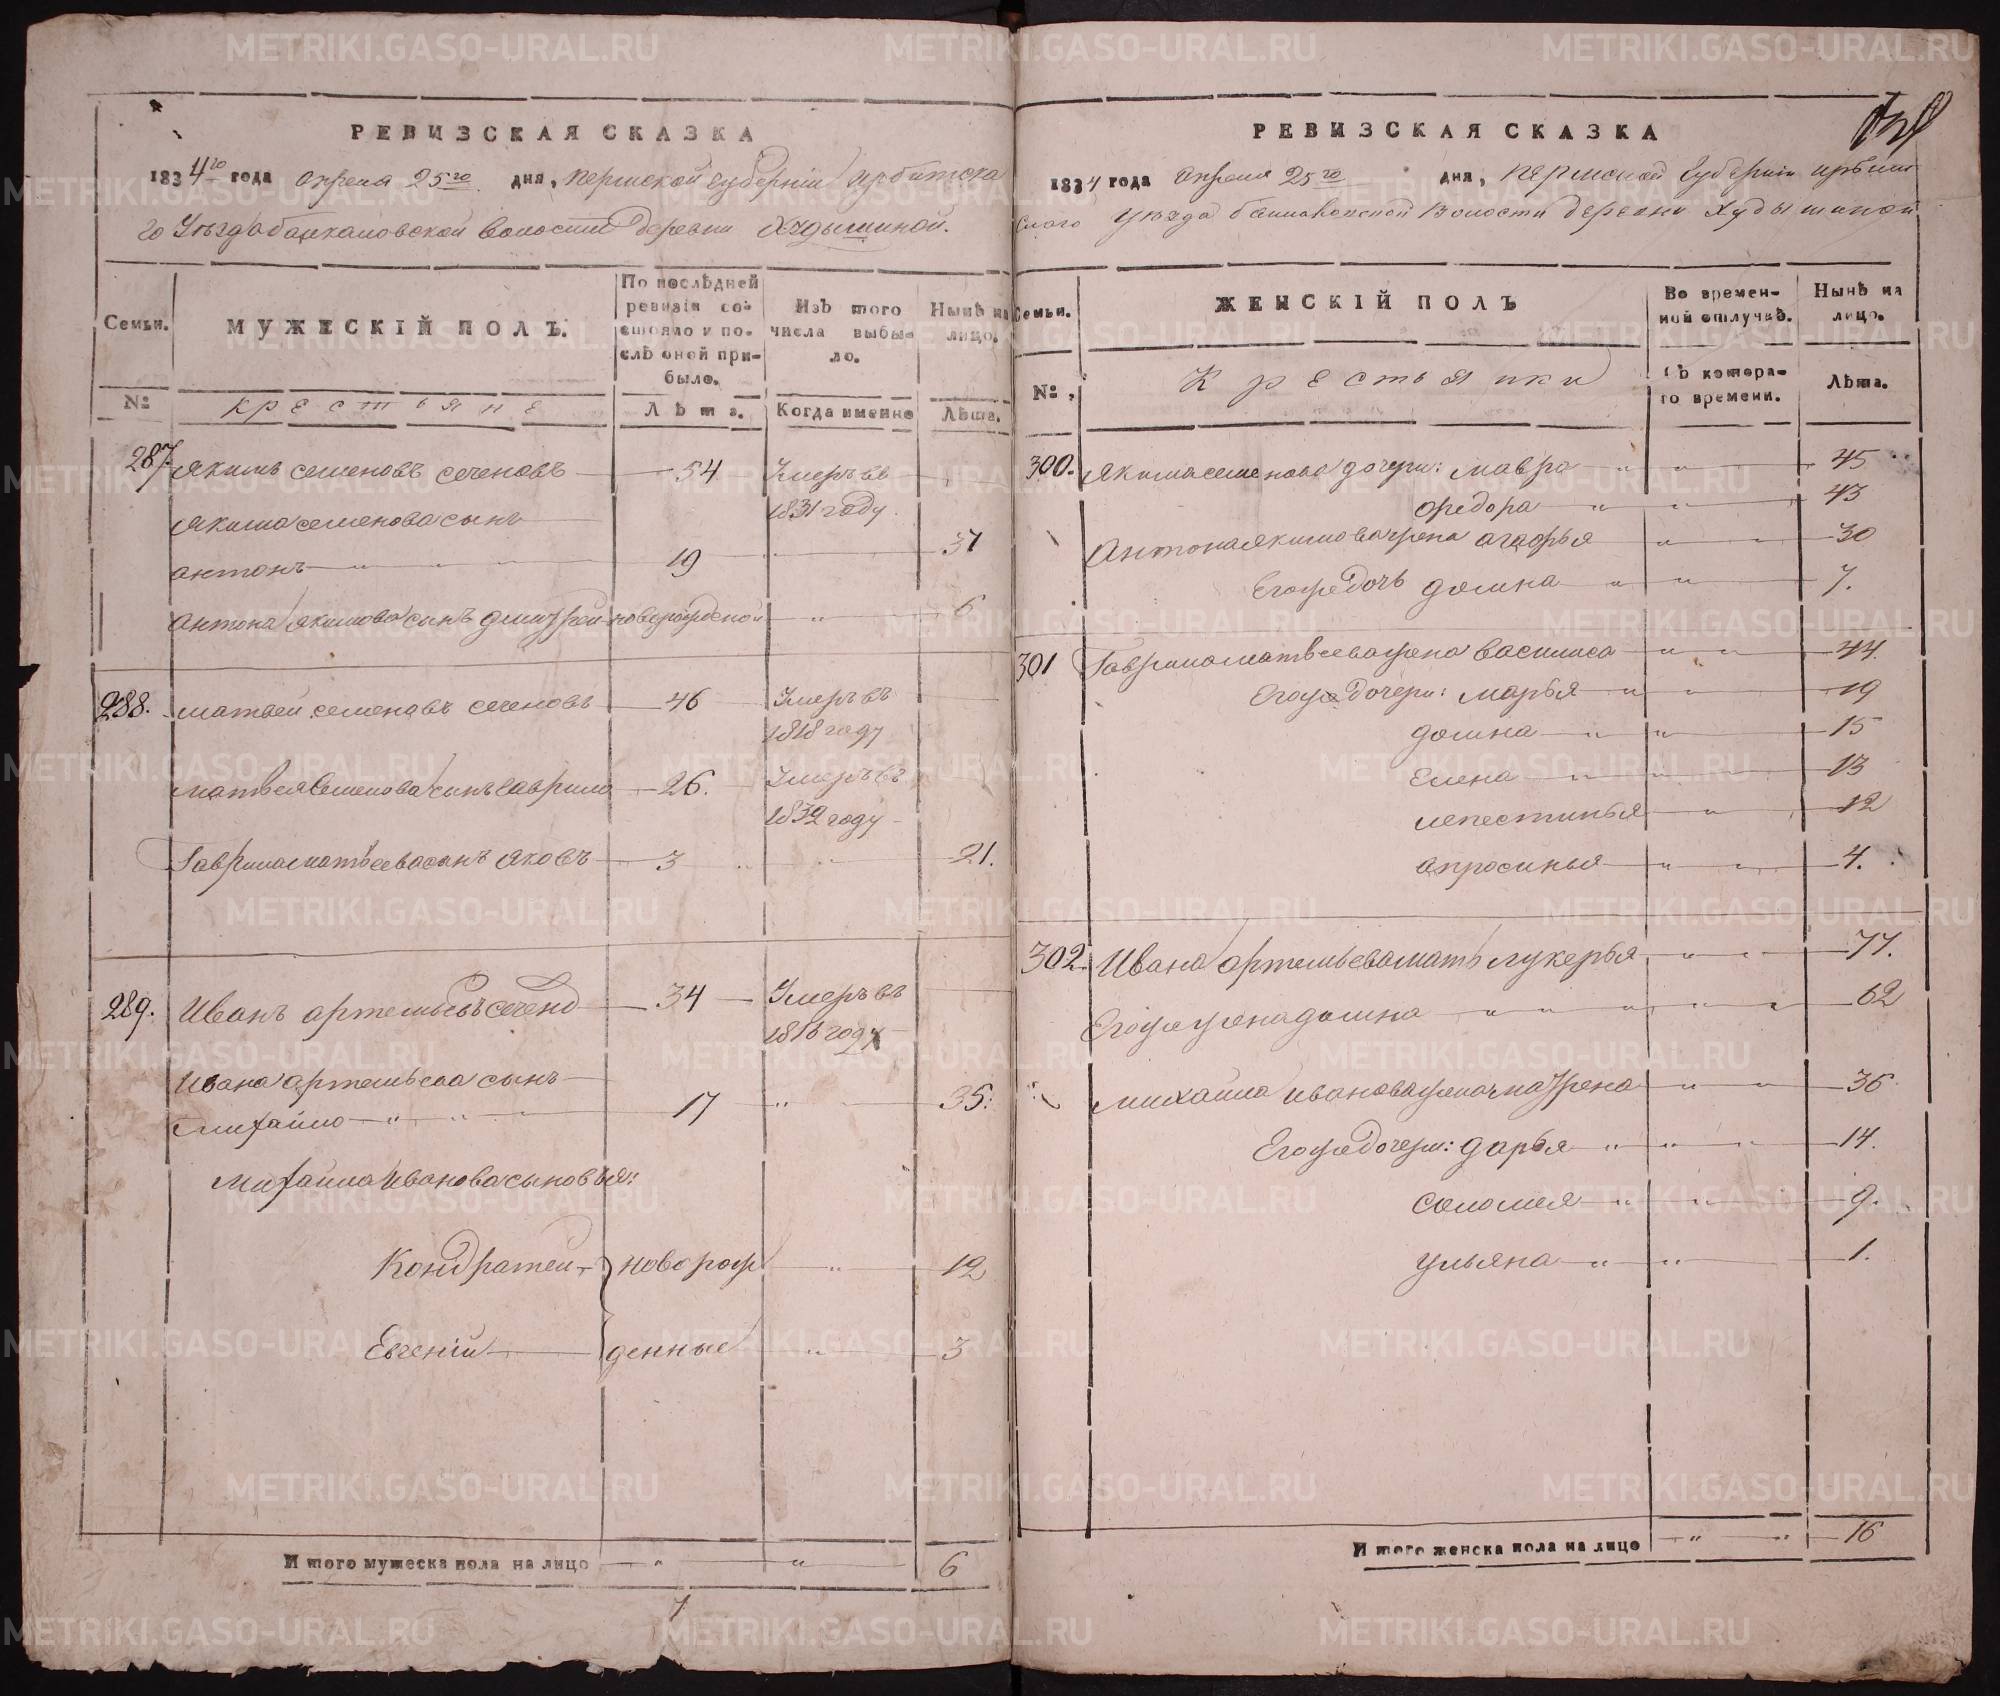 РЕВИЗСКАЯ СКАЗКА
1834го года апреля 25го дня, пермской губерніи ирбитска
го Уѣзда баикаловской волости деревни Худышиной.
Семьи. МУЖЕСКІЙ ПОЛЪ. По послѣдней ревизіи состояло и послѣ оной прибыло. Изъ того числа выбыло. Нынѣ на лицо.
№ крестьяне Лѣта. Когда именно Лѣта.
287. Якимъ семеновъ сеченовъ 54 Умеръ въ
1831 году.
Якима семенова сынъ
антонъ 19 37
Антона якимова сынъ дмитрей новорожденой 6
288. матвей семеновъ сеченовъ 46 Умеръ въ
1818 году
матвея Семенова сынъ гаврило 26. Умеръ въ
1832 году
Гаврила матвеева сынъ яковъ 3 21.
289. Иванъ артемьевъ 34 Умеръ въ
1816 году
Ивана артемьева сынъ
михайло 17 35.
михайла Иванова сыновья:
Кондратей новорож 12
Евгеній денные 3
И того мужеска пола на лицо 6
РЕВИЗСКАЯ СКАЗКА
1834 года апреля 25го дня, пермской губерніи ирбит
скаго уѣзда баикаловской волости деревни Худышиной
Семьи. ЖЕНСКІЙ ПОЛЪ Во временной отлучкѣ. Нынѣ на лицо.
№ Крестьянки Съ котораго времени. Лѣта.
300. Якима семенова дочери: мавра 45
федора 43
Антона якимова жена агафья 30
Егоже дочь домна 7.
301 Гаврила матвеева жена василиса 44.
Егоже дочери: марья 19
домна 15
Елена 13
лепестинья 12
апросинья 4.
302. Ивана артемьева мать лукерья 77.
Егоже жена домна 62
михайла иванова жена матрена 36.
Егоже дочери: дарья 14.
соломея 9.
ульяна 1.
И того женска пола на лицо 16
METRIKI.GASO-URAL.RU